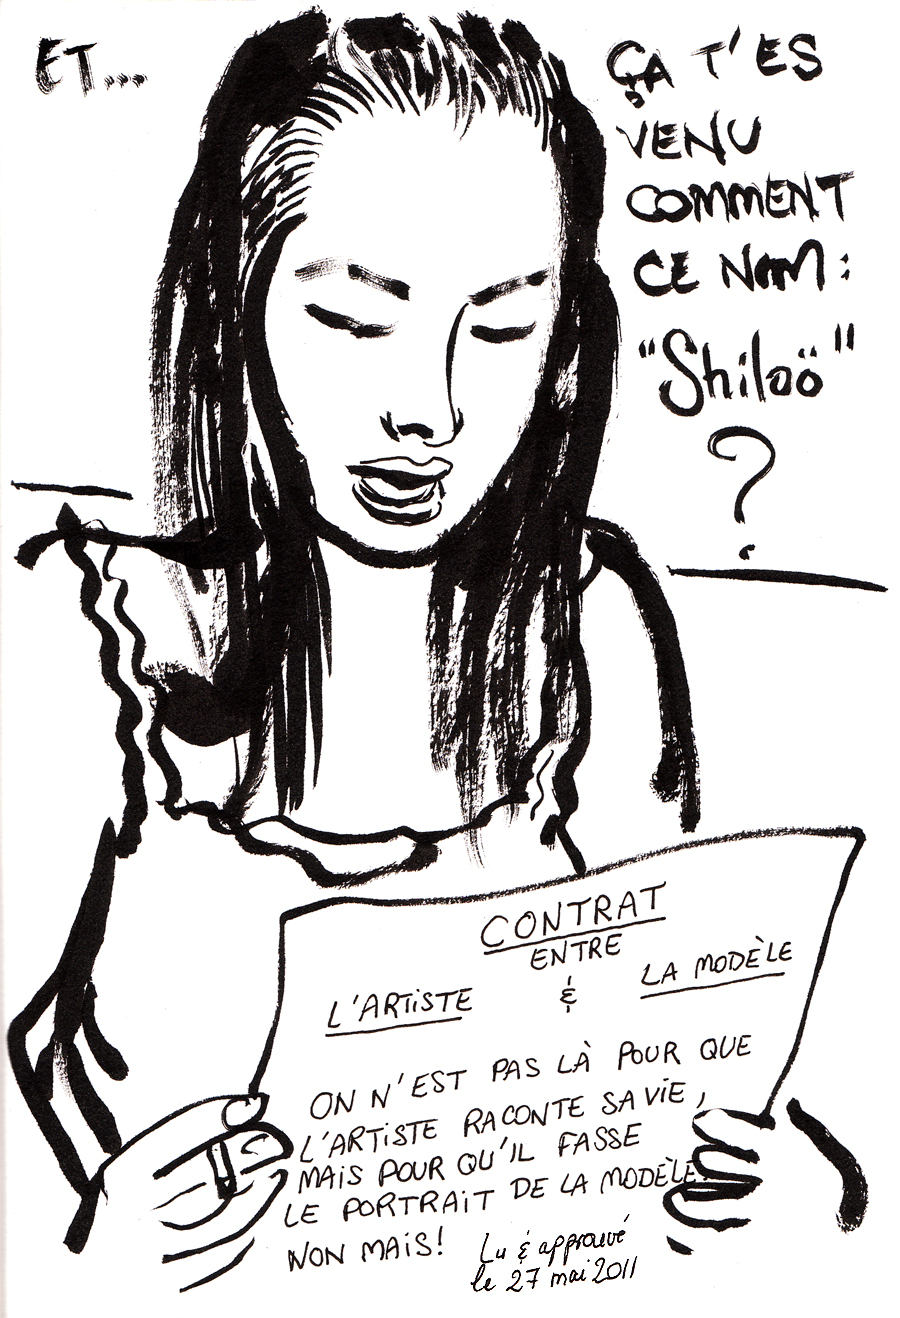 ET...
ÇA T'ES
VENU
COMMENT
CE NOM :
"Shiloö"
?
CONTRAT
ENTRE
L'ARTISTE & LA MODÈLE
ON N'EST PAS LÀ POUR QUE
L'ARTISTE RACONTE SA VIE,
MAIS POUR QU'IL FASSE
LE PORTRAIT DE LA MODÈLE.
NON MAIS!
Lu & approuvé
le 27 mai 2011